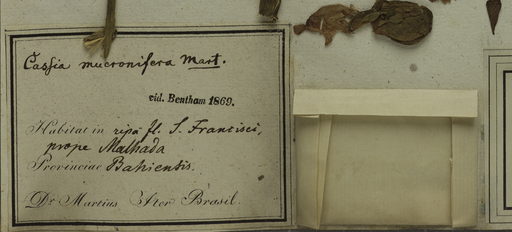 Cassia mucronifera Mart.
vid. Bentham 1869.
Habitat in ripa fl. S. Francisci,
prope Malhada
Provinciae Bahiensis.
Dr. Martius Iter Brasil.